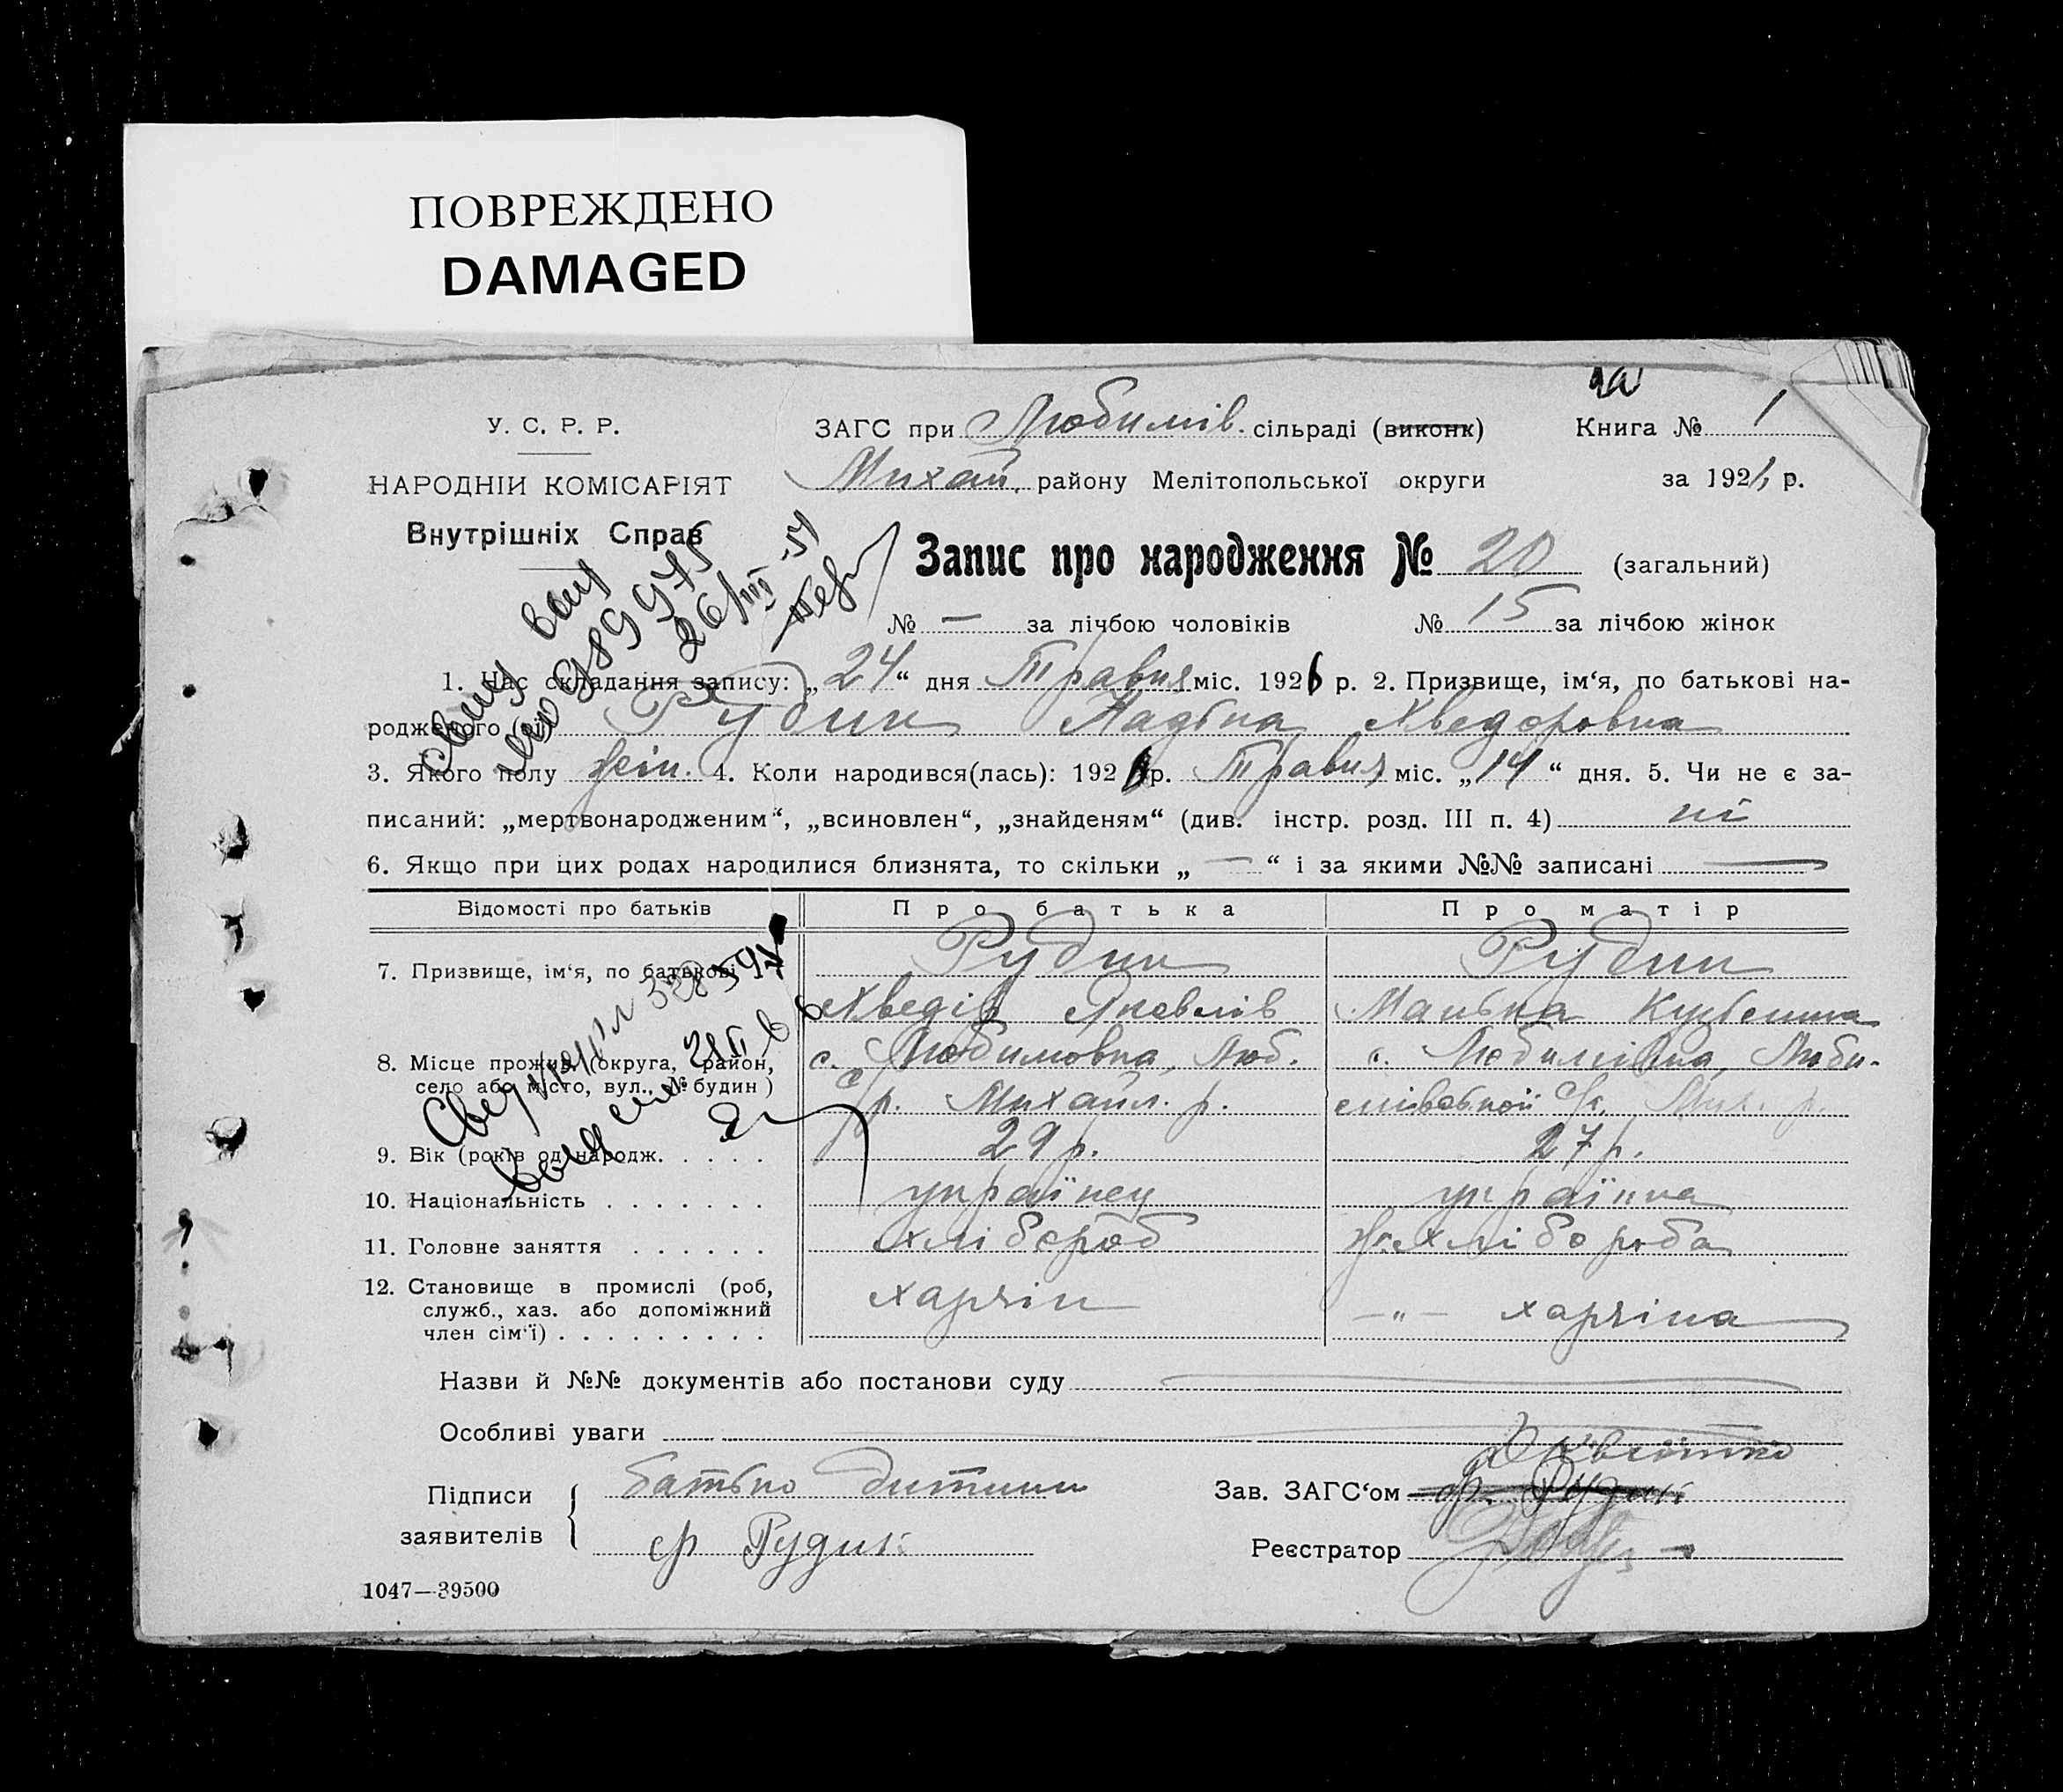 ПОВРЕЖДЕНО
DAMAGED
У. С. Р. Р.
НАРОДНІЙ КОМІСАРІЯТ
Внутрішніх Справ
ЗАГС при Любимів. сільраді (виконк)
Книга № 1
Михай. району Мелітопольської округи
за 192 р.
Запис про народження № 20 (загальний)
№ — за лічбою чоловіків № 15 за лічбою жінок
1. Час складання запису: „24“ дня Травня міс. 1926 р. 2. Призвище, ім‘я, по батькові на-
родженого Рудик Хведоровна
3. Якого полу жін. 4. Коли народився(лась): 192 р. Травня міс. „14“ дня. 5. Чи не є за-
писаний: „мертвонародженим“, „всиновлен“, „знайденям“ (див. інстр. розд. III п. 4) ні
6. Якщо при цих родах народилися близнята, то скільки „ — “ і за якими №№ записані —
Відомості про батьків Про батька Про матір
7. Призвище, ім‘я, по батькові Рудик Рудик
Хведір Яковлів
8. Місце прожив. (округа, район, с. Любимовка, Люб. с. Любимівка, Люби-
село або місто, вул., № будин) с/р. Михайл. р. мівської с/р. Мих. р.
9. Вік (років од народж. . . . . . 29 р. 27 р.
10. Національність . . . . . . . українец українка
11. Головне заняття . . . . . . хлібороб ж. хлібороба
12. Становище в промислі (роб, хазяїн —"— хазяїна
служб., хаз. або допоміжний
член сім‘ї) . . . . . . . . .
Назви й №№ документів або постанови суду
Особливі уваги
Підписи заявителів батько дитини
Зав. ЗАГС‘ом
Рудик
Реєстратор
1047—39500